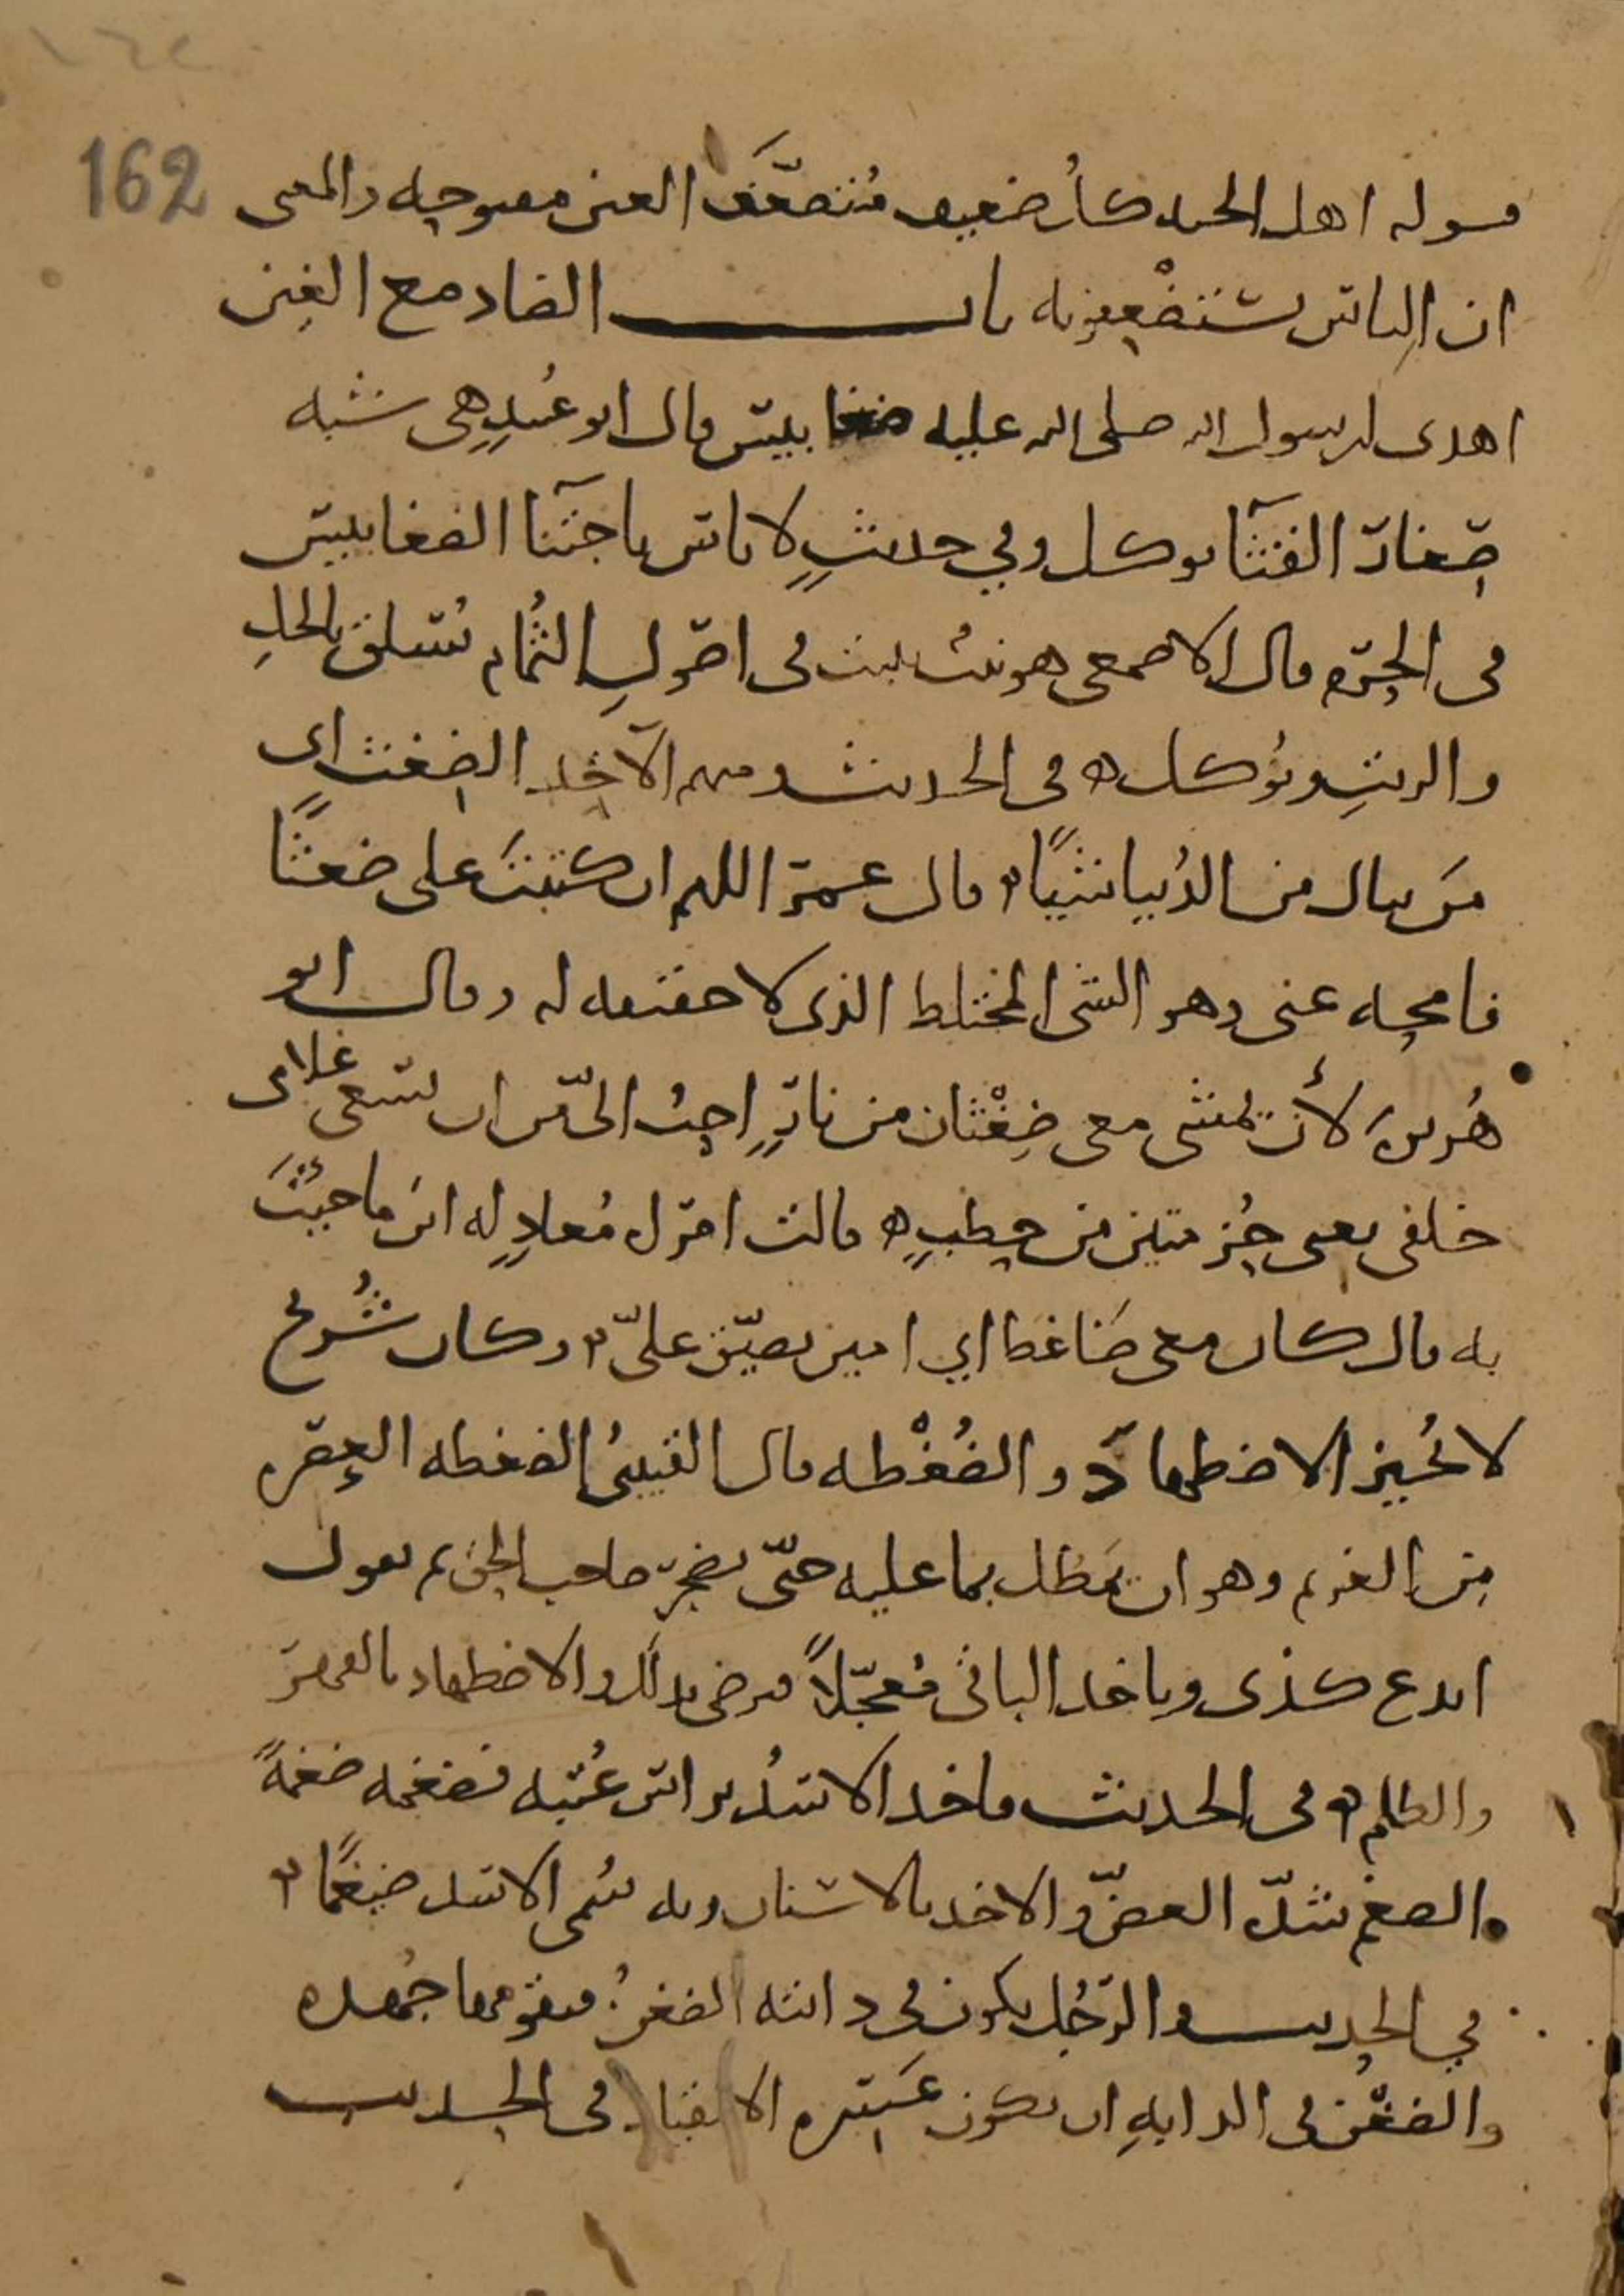 ١٦٢
162
قوله اهل الجنه كل ضعيف متضعَّف العين مفتوحه والمعنى
ان الناس يستضعفونه باب الضاد مع الغين
اهدى لرسول الله صلى الله عليه ضغابيس قال ابو عُبيدٍ هى شبه
صغار القثآ يوكل وفي حديثٍ لا باس باجتنآ الضغابيس
فى الحرم قال الاصمعى هو نبت ينبت فى اصول الثُمام يُسلق بالخلِ
والزيتِ ويُؤكل ه فى الحديث ومنهم الآخِذ الضِغث اى
مَن نال من الدُنيا شيئًا ه قال عمر اللهم ان كتبتَ على ضغثًا
فامحه عنى وهو الشى المختلط الذى لا حقيقه له وقال ابو
هُريرة لأن يمشى معى ضِغْثان من نارٍ احبُ الىّ من ان يسعى غلامى
خلفى يعنى حُزمتين من حطبٍ ه قالت امرأة مُعاذٍ له اين ما جئتَ
به قال كان معى ضَاغط اي امين يضيّق علىّ ه وكان شُريح
لا يُجيز الاضطهادَ والضُغْطه قال القتيبىُ الضغطه العصره
مِن الغريم وهو ان يَمطُل بما عليه حتّى يضجر صاحب الحق ثم يقول
اتدع كذى وياخذ الباقى مُعجّلاً فيرضى بذلك والاضطهاد القهر
والظلم ه فى الحديث فاخذ الاسدُ براس عُتبه فضغمه ضغمةً
الضغم شدّة العضّ والاخذ بالاسنان وبه سُمى الاسد ضيغمًا ه
في الحديث والرجُل يكون فى دابته الضغن فيقومها جُهده
والضغْن فى الدابهِ ان يكون عَسِره الانقياد فى الحديث